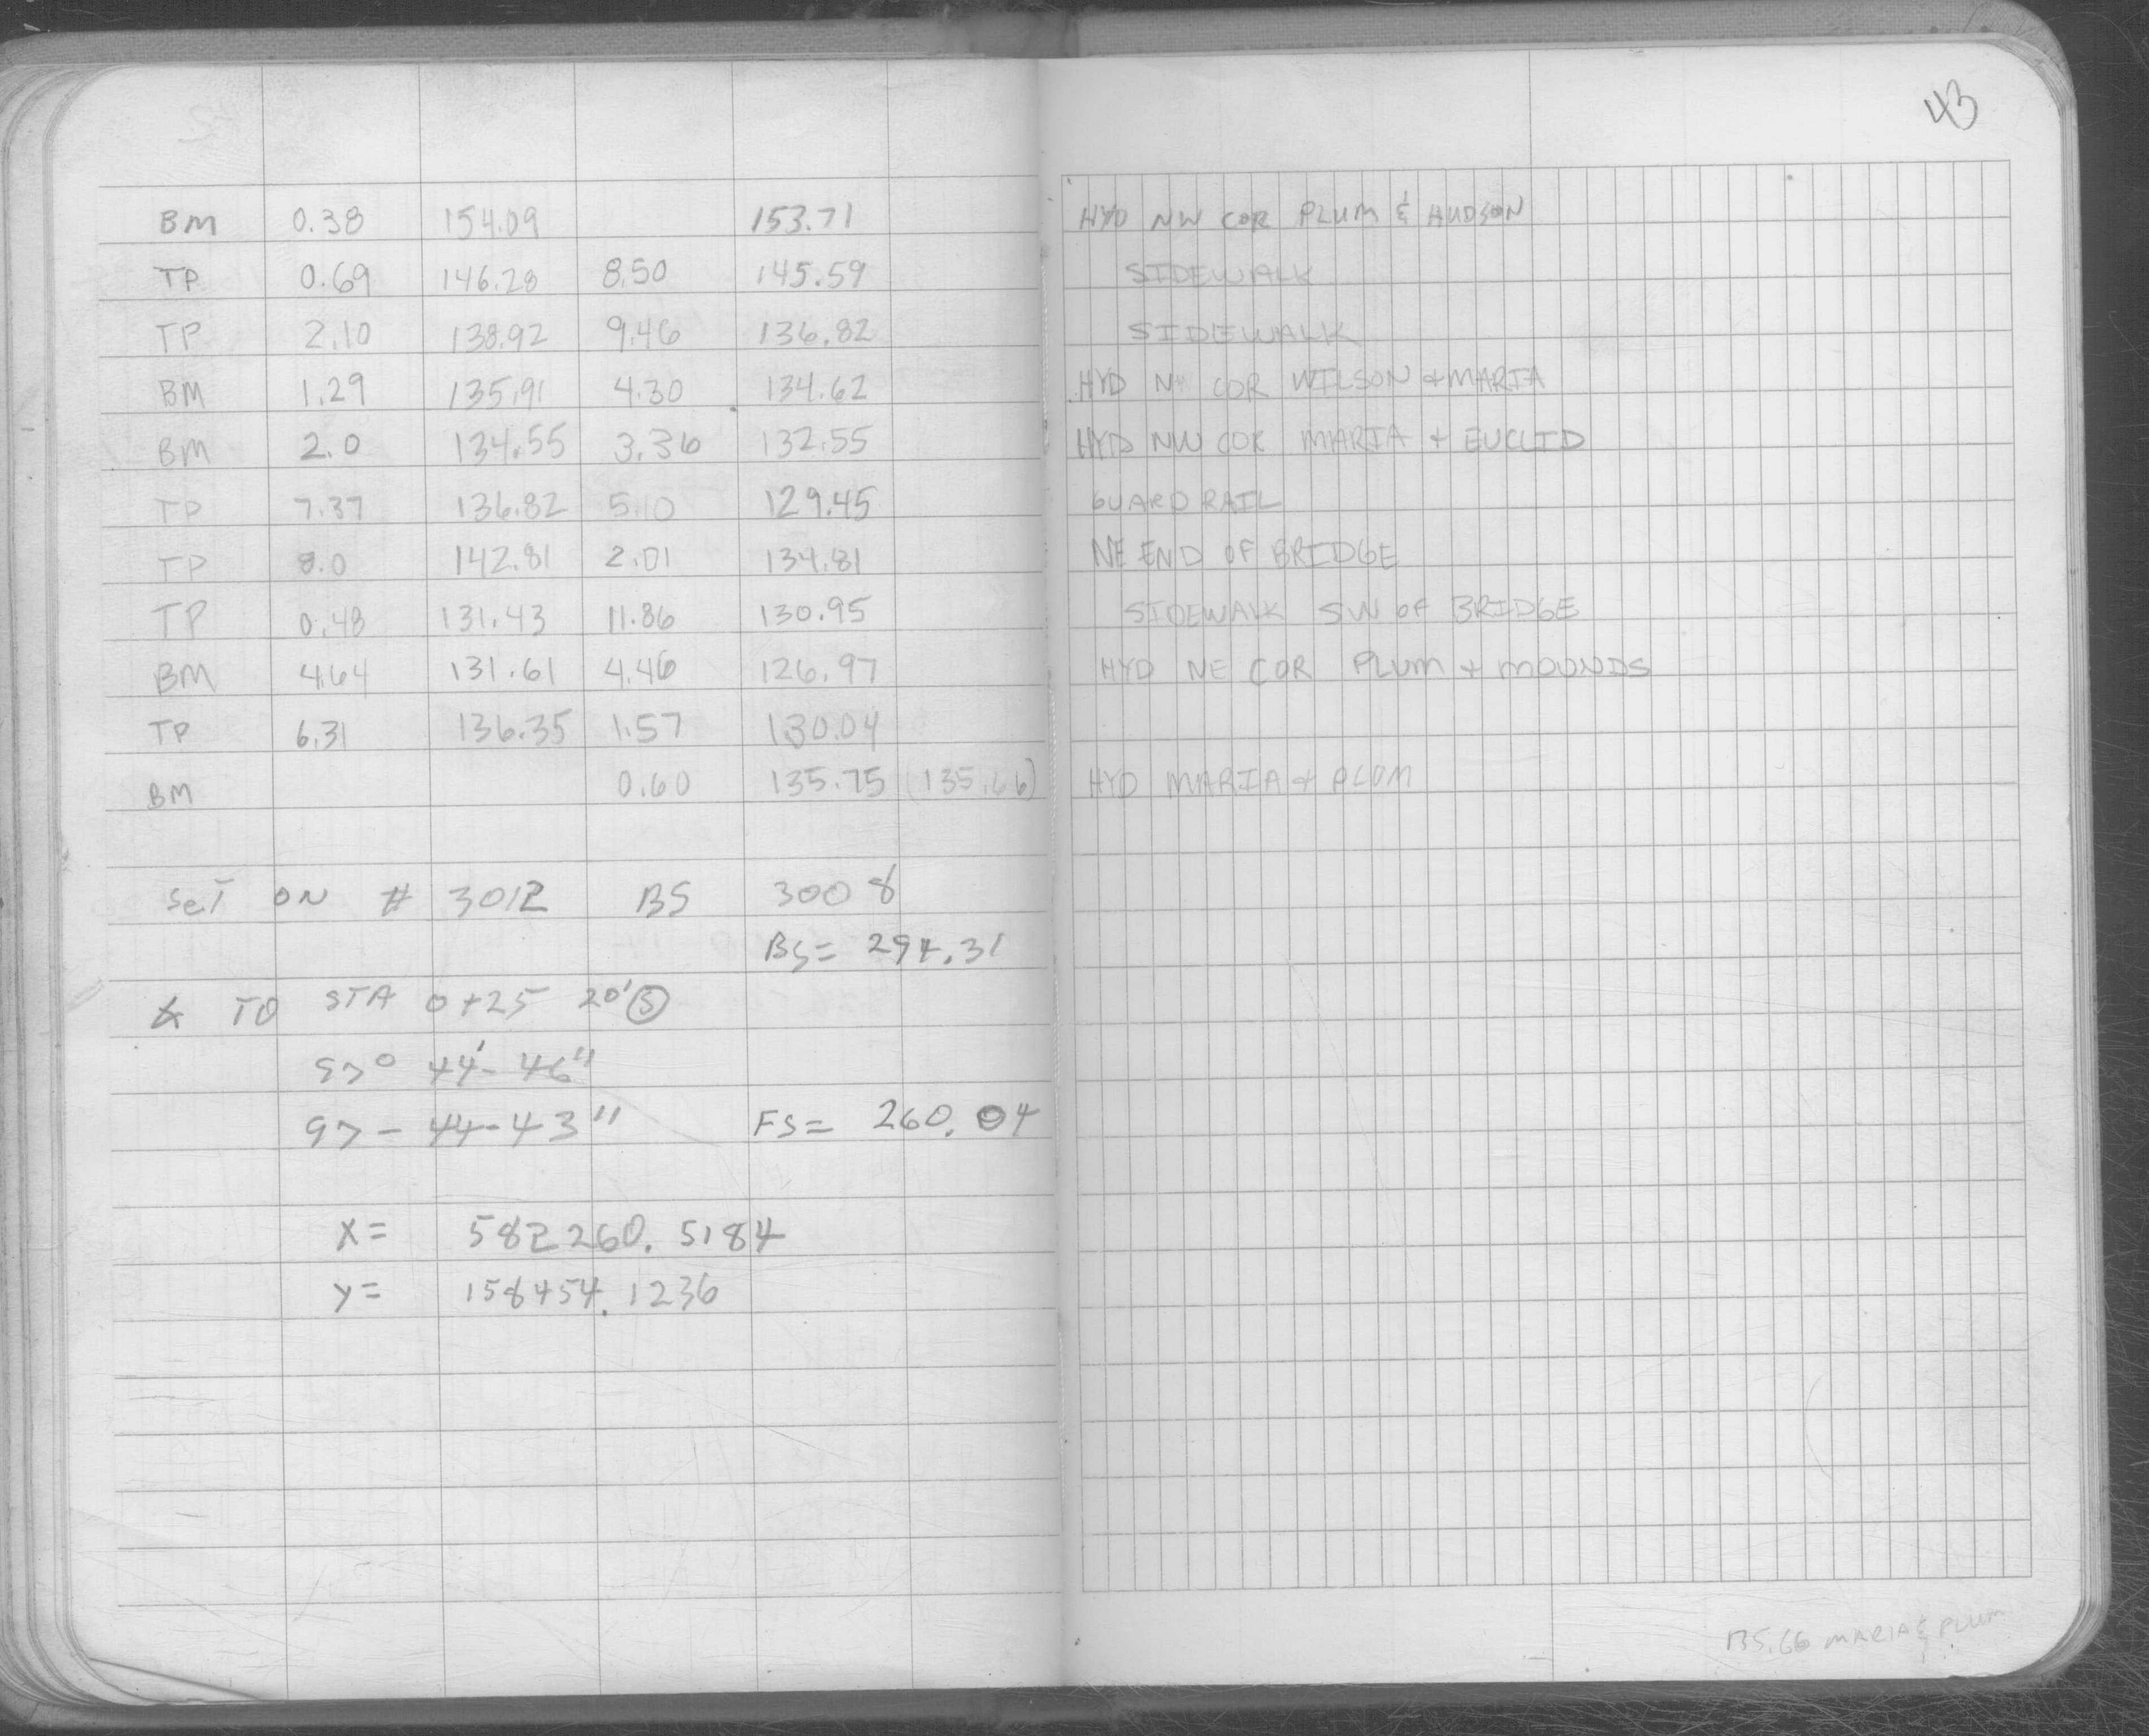 43
BM 0.38 154.09 153.71 HYD NW COR PLUM & HUDSON
TP 0.69 146.28 8.50 145.59 SIDEWALK
TP 2.10 138.92 9.46 136.82 SIDEWALK
BM 1.29 135.91 4.30 134.62 HYD COR WILSON & MARIA
BM 2.0 134.55 3.36 132.55 HYD NW COR MARIA + EUCLID
TP 7.37 136.82 5.10 129.45 GUARD RAIL
TP 8.0 142.81 2.01 134.81 NE END OF BRIDGE
TP 0.48 131.43 11.86 130.95 SIDEWALK SW OF BRIDGE
BM 4.64 131.61 4.46 126.97 HYD NE COR PLUM + MOUNDS
TP 6.31 136.35 1.57 130.04
BM 0.60 135.75 (135.66) HYD MARIA & PLUM
SET ON # 3012 BS 3008
BS= 294.31
TO STA 0+25 20' Ⓢ
97° 44'- 46"
97 - 44 - 43" FS= 260.04
X= 582260.5184
Y= 158454.1236
135.66 MARIA & PLUM